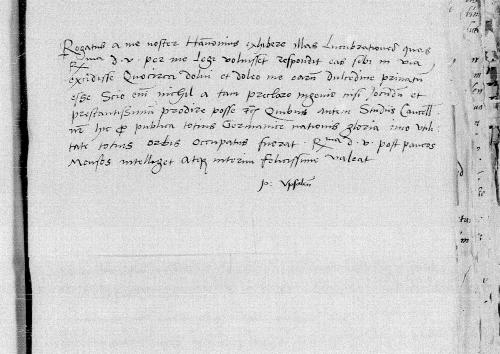 Rogatus a me noster Hannonius exhibere illas Lucubrationes quas
R.ma d. v. per me Lege voluisset respondit eas sibi in via
excidisse Quocirca dolui et doleo me earum dulcedine privatum
esse Scio enim nichil a tam preclaro ingenio nisi iocundum et
prestantissimum prodire posse Quibus autem Studiis
hic et publica totius Germanice nationis gloria imo utili
tate totius orbis occupatus fuerat R.ma d. v. post paucos
Menses intelliget Atque interim Felicissime valeat
Jo: Upsalen